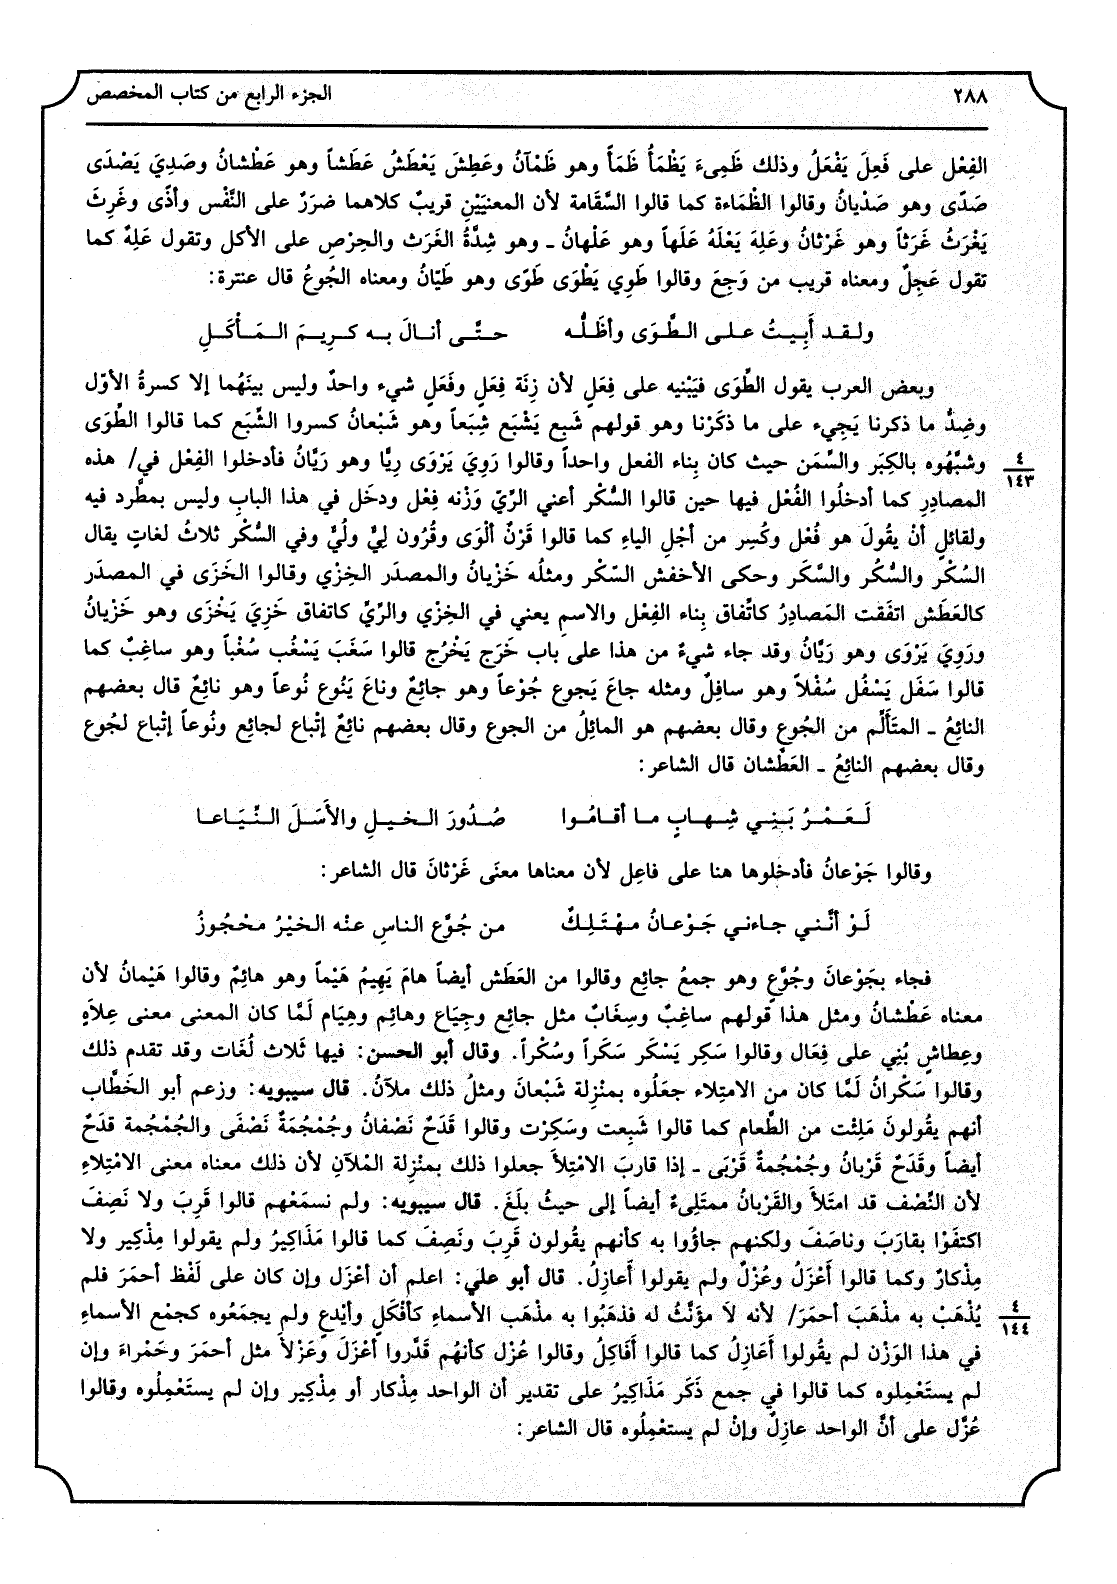 ٢٨٨
الجزء الرابع من كتاب المخصص
الفِعْل على فَعِلَ يَفْعَلُ وذلك ظَمِىءَ يَظْمَأُ ظَمَأً وهو ظَمْآنُ وعَطِشَ يَعْطَشُ عَطَشاً وهو عَطْشانُ وصَدِيَ يَصْدَى
صَدًى وهو صَدْيانُ وقالوا الظْمَاءة كما قالوا السَّقَامة لأن المعنيَيْنِ قريبٌ كلاهما ضرَرٌ على النَّفْس وأذًى وغَرِثَ
يَغْرَثُ غَرَثاً وهو غَرْثانُ وعَلِهَ يَعْلَهُ عَلَهاً وهو عَلْهانُ ـ وهو شِدَّةُ الغَرَث والحِرْصِ على الأكل وتقول عَلِهٌ كما
تقول عَجِلٌ ومعناه قريب من وَجِعَ وقالوا طَوِي يَطْوَى طَوًى وهو طَيَّانُ ومعناه الجُوعُ قال عنترة:
ولقد أَبِيتُ على الطَّوَى وأظَلُّه حتَّى أنالَ به كرِيمَ المَأْكَلِ
وبعض العرب يقول الطِّوَى فيَبْنيه على فِعَلٍ لأن زِنَة فِعَلٍ وفَعَلٍ شيء واحدٌ وليس بينَهُما إلا كسرةُ الأوّل
وضِدُّ ما ذكرنا يَجِيء على ما ذكَرْنا وهو قولهم شَبِع يَشْبَع شِبَعاً وهو شَبْعانُ كسروا الشِّبَع كما قالوا الطِّوَى
وشبَّهُوه بالكِبَر والسِّمَن حيث كان بِناء الفعل واحداً وقالوا رَوِيَ يَرْوَى رِيًّا وهو رَيَّانُ فأدخلوا الفِعْل في/ هذه
٤
١٤٣
المصادِرِ كما أدخلُوا الفُعْل فيها حين قالوا السُّكْر أعني الرِّيّ وَزْنه فِعْل ودخَل في هذا البابِ وليس بمطَّرد فيه
ولقائلٍ أنْ يقُولَ هو فُعْل وكُسِر من أجْلِ الياءِ كما قالوا قَرْنٌ ألْوَى وقُرُون لِيٌّ ولُيٌّ وفي السُّكْر ثلاثُ لغاتٍ يقال
السُكْر والسُّكُر والسَّكَر وحكى الأخفش السّكْر ومثلُه خَزْيانُ والمصدَر الخِزْي وقالوا الخَزَى في المصدَر
كالعَطَش اتفَقت المَصادِرُ كاتِّفاق بِناء الفِعْل والاسمِ يعني في الخِزْي والرِّيِّ كاتفاق خَزِيَ يَخْزَى وهو خَزْيانُ
ورَوِيَ يَرْوَى وهو رَيَّانُ وقد جاء شيءٌ من هذا على باب خَرَج يَخْرُج قالوا سَغَبَ يَسْغُب سُغْباً وهو ساغِبٌ كما
قالوا سَفَل يَسْفُل سُفْلاً وهو سافِلٌ ومثله جاعَ يَجوع جُوْعاً وهو جائِعٌ وناعَ يَنُوع نُوعاً وهو نائِعٌ قال بعضهم
النائِعُ ـ المتَأَلَّم من الجُوعِ وقال بعضهم هو المائِلُ من الجوع وقال بعضهم نائِعٌ إتْباع لجائع ونُوعاً إتْباع لجُوع
وقال بعضهم النائِعُ ـ العَطَّشان قال الشاعر:
لَعَمْرُ بَنِي شِهابٍ ما أقامُوا صُدُورَ الخيلِ والأَسَلَ النِّيَاعا
وقالوا جَوْعانُ فأدخلوها هنا على فاعِل لأن معناها معنَى غَرْثانَ قال الشاعر:
لَوْ أنَّني جاءني جَوْعانُ مهْتَلِكٌ من جُوَّع الناسِ عنْه الخيْرُ محْجُوزُ
فجاء بجَوْعانَ وجُوَّعٍ وهو جمعُ جائِع وقالوا من العَطَش أيضاً هامَ يَهِيمُ هَيْماً وهو هائِمٌ وقالوا هَيْمانُ لأن
معناه عَطْشانُ ومثل هذا قولهم ساغِبٌ وسِغَابٌ مثل جائِع وجِيَاع وهائِم وهِيَام لَمَّا كان المعنى معنى عِلاَهٍ
وعِطاشٍ بُنِي على فِعَال وقالوا سَكِر يَسْكَر سَكَراً وسُكْراً. وقال أبو الحسن: فيها ثَلاث لُغَات وقد تقدم ذلك
وقالوا سَكْرانُ لَمَّا كان من الامتِلاء جعَلُوه بمنْزِلة شَبْعانَ ومثلُ ذلك ملآنُ. قال سيبويه: وزعم أبو الخَطَّاب
أنهم يقُولونَ مَلِئْت من الطَّعام كما قالوا شَبِعت وسَكِرْت وقالوا قَدَحٌ نَصْفانُ وجُمْجُمَةٌ نَصْفَى والجُمْجُمة قَدَحٌ
أيضاً وقَدَحٌ قَرْبانُ وجُمْجُمةٌ قَرْبَى ـ إذا قاربَ الامْتِلأَ جعلوا ذلك بمنْزِلة المْلآنِ لأن ذلك معناه معنى الامْتِلاءِ
لأن النّصْف قد امتَلأَ والقَرْبانُ ممتَلِىءٌ أيضاً إلى حيثُ بلَغَ. قال سيبويه: ولم نسمَعْهم قالوا قَرِبَ ولا نَصِفَ
اكتفَوْا بقارَبَ وناصَفَ ولكنهم جاؤُوا به كأنهم يقُولون قَرِبَ ونَصِفَ كما قالوا مَذَاكِيرُ ولم يقولوا مِذْكِير ولا
مِذْكارٌ وكما قالوا أَعْزَلُ وعُزْلٌ ولم يقولوا أَعازِلُ. قال أبو علي: اعلم أن أعْزَل وإن كان على لَفْظ أحمَرَ فلم
يُذْهَبْ به مذْهَبَ أحمَرَ/ لأنه لاَ مؤنَّثُ له فذهَبُوا به مذْهَب الأسماءِ كأفْكَلٍ وأيْدعٍ ولم يجمَعُوه كجمْع الأسماءِ
٤
١٤٤
في هذا الوَزْن لم يقُولوا أَعَازِلُ كما قالوا أَفَاكِلُ وقالوا عُزْل كأنهُم قَدَّروا أعْزَلَ وعَزْلاَ مثل أحمَرَ وحَمْراءَ وإن
لم يستَعْمِلوه كما قالوا في جمع ذَكَر مَذَاكِيرُ على تقدير أن الواحد مِذْكار أو مِذْكِير وإن لم يستَعْمِلُوه وقالوا
عُزَّل على أنَّ الواحد عازِلٌ وإنْ لم يستعْمِلُوه قال الشاعر: